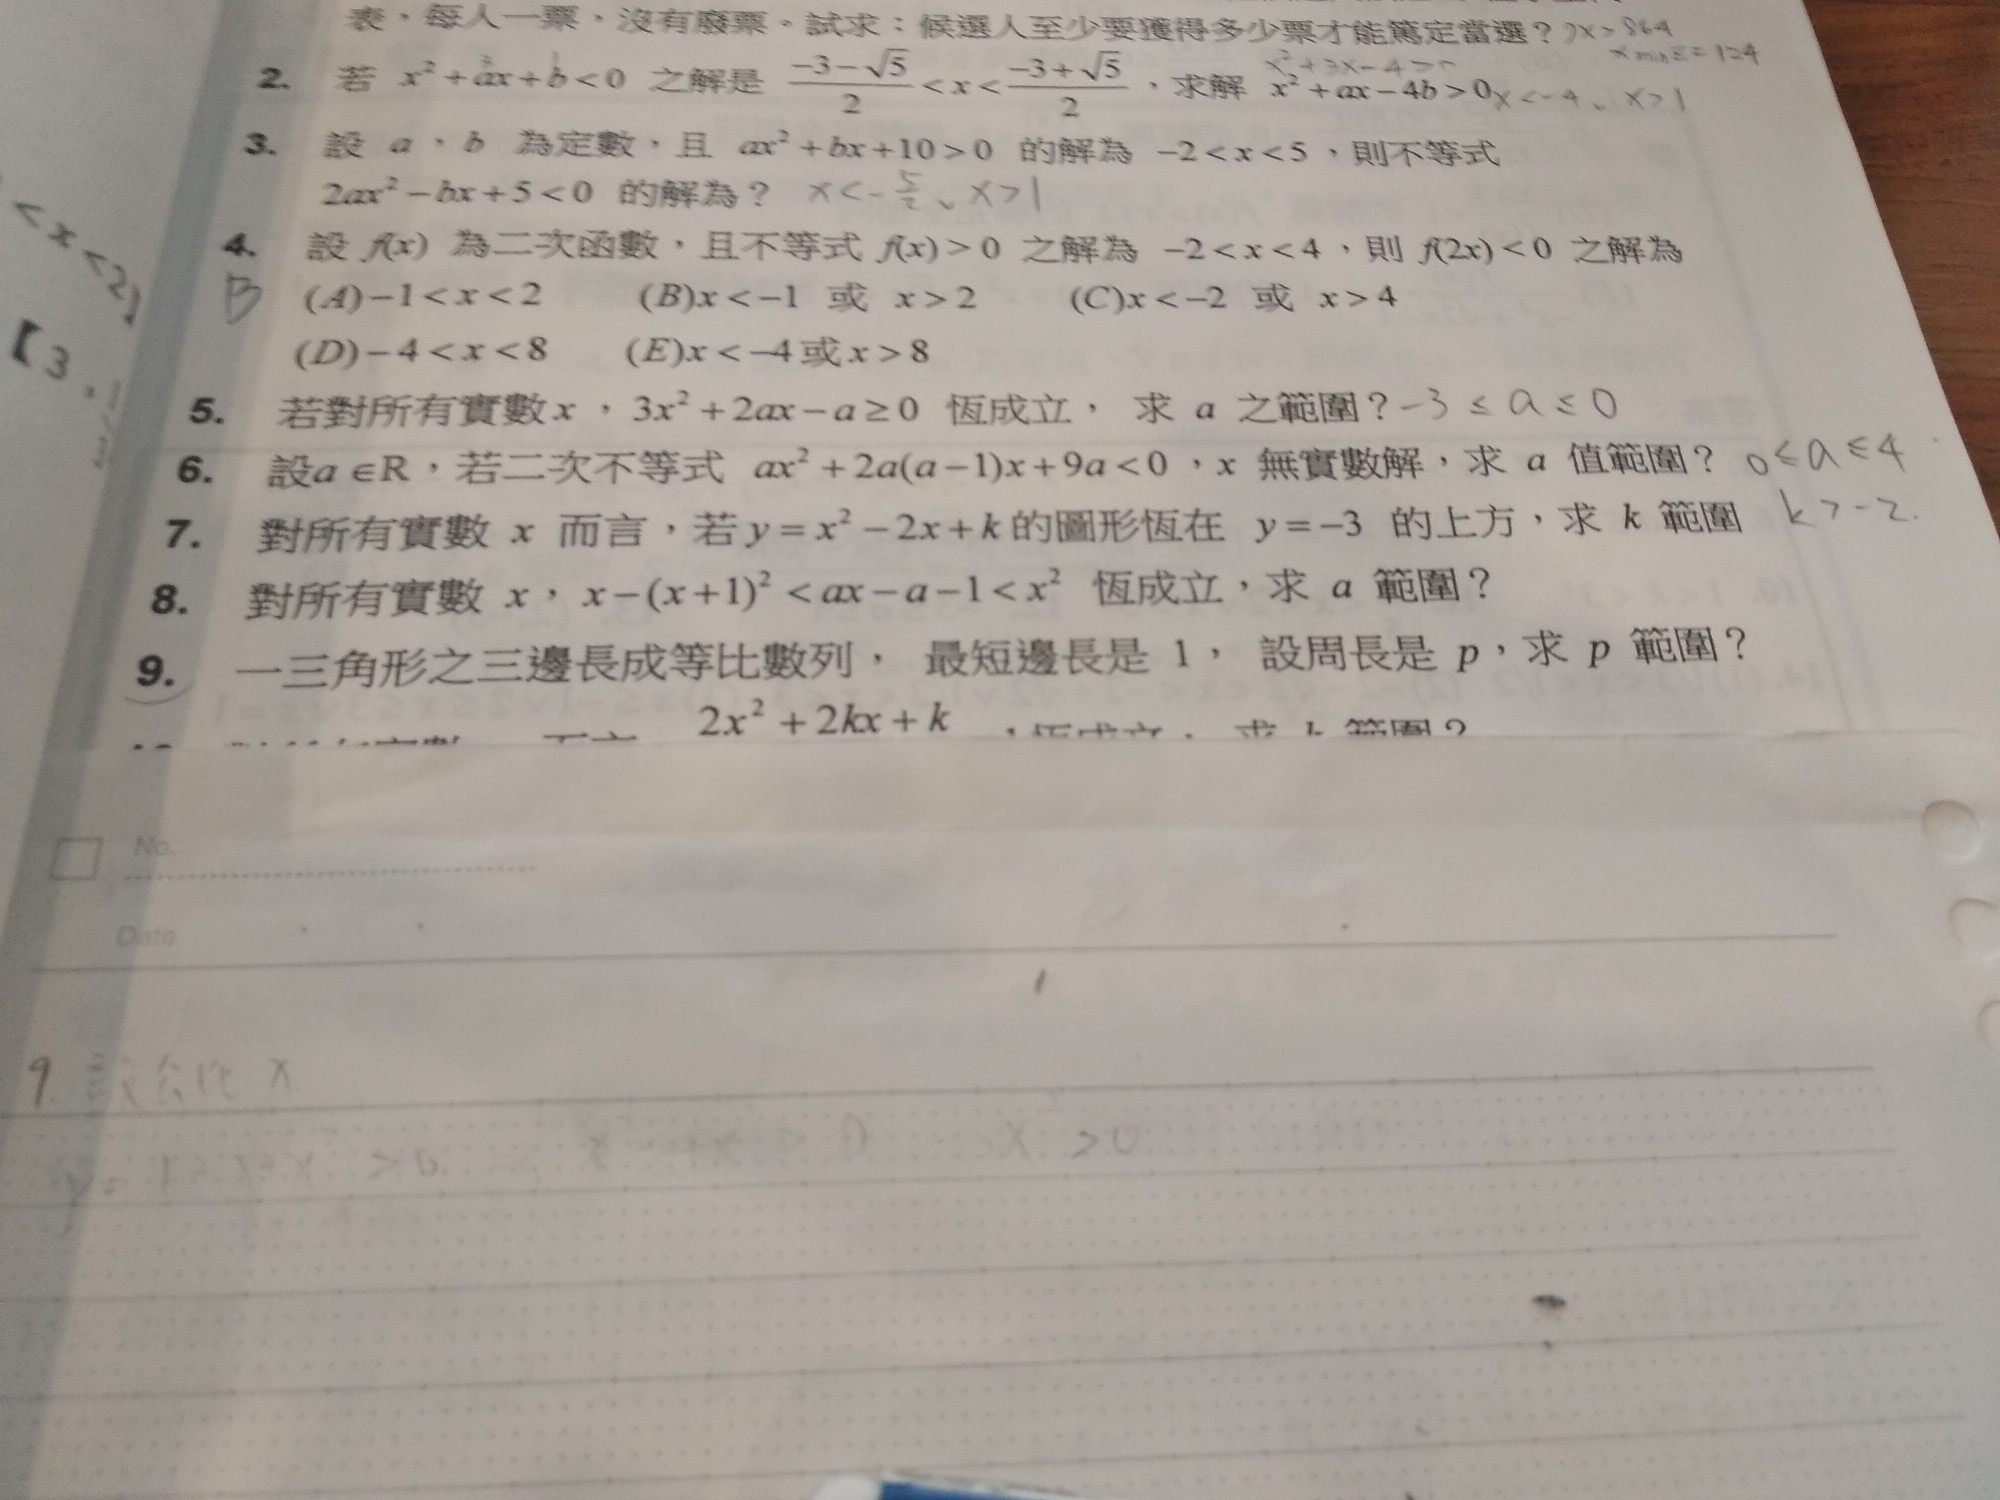 表，每人一票，沒有廢票。試求：候選人至少要獲得多少票才能篤定當選？ 7x>864
x min z = 124
2. 若 x² + ax + b < 0 之解是 (-3-√5)/2 < x < (-3+√5)/2 ，求解 x² + ax - 4b > 0 x<-4、x>1
3 1 x²+3x-4>0
3. 設 a、b 為定數，且 ax² + bx + 10 > 0 的解為 -2 < x < 5，則不等式
2ax² - bx + 5 < 0 的解為？ x<-5/2、x>1
4. 設 f(x) 為二次函數，且不等式 f(x) > 0 之解為 -2 < x < 4，則 f(2x) < 0 之解為
B (A) -1 < x < 2 (B) x < -1 或 x > 2 (C) x < -2 或 x > 4
(D) -4 < x < 8 (E) x < -4 或 x > 8
5. 若對所有實數 x ，3x² + 2ax - a ≥ 0 恆成立， 求 a 之範圍？ -3 ≤ a ≤ 0
6. 設 a ∈ R，若二次不等式 ax² + 2a(a-1)x + 9a < 0 ，x 無實數解，求 a 值範圍？ 0 ≤ a ≤ 4
7. 對所有實數 x 而言，若 y = x² - 2x + k 的圖形恆在 y = -3 的上方，求 k 範圍 k > -2.
8. 對所有實數 x，x - (x+1)² < ax - a - 1 < x² 恆成立，求 a 範圍？
9. 一三角形之三邊長成等比數列， 最短邊長是 1， 設周長是 p，求 p 範圍？
2x² + 2kx + k 恆成立， 求 k 範圍？
<x<2
【3,
No.
Date
9. 設公比 x
>0